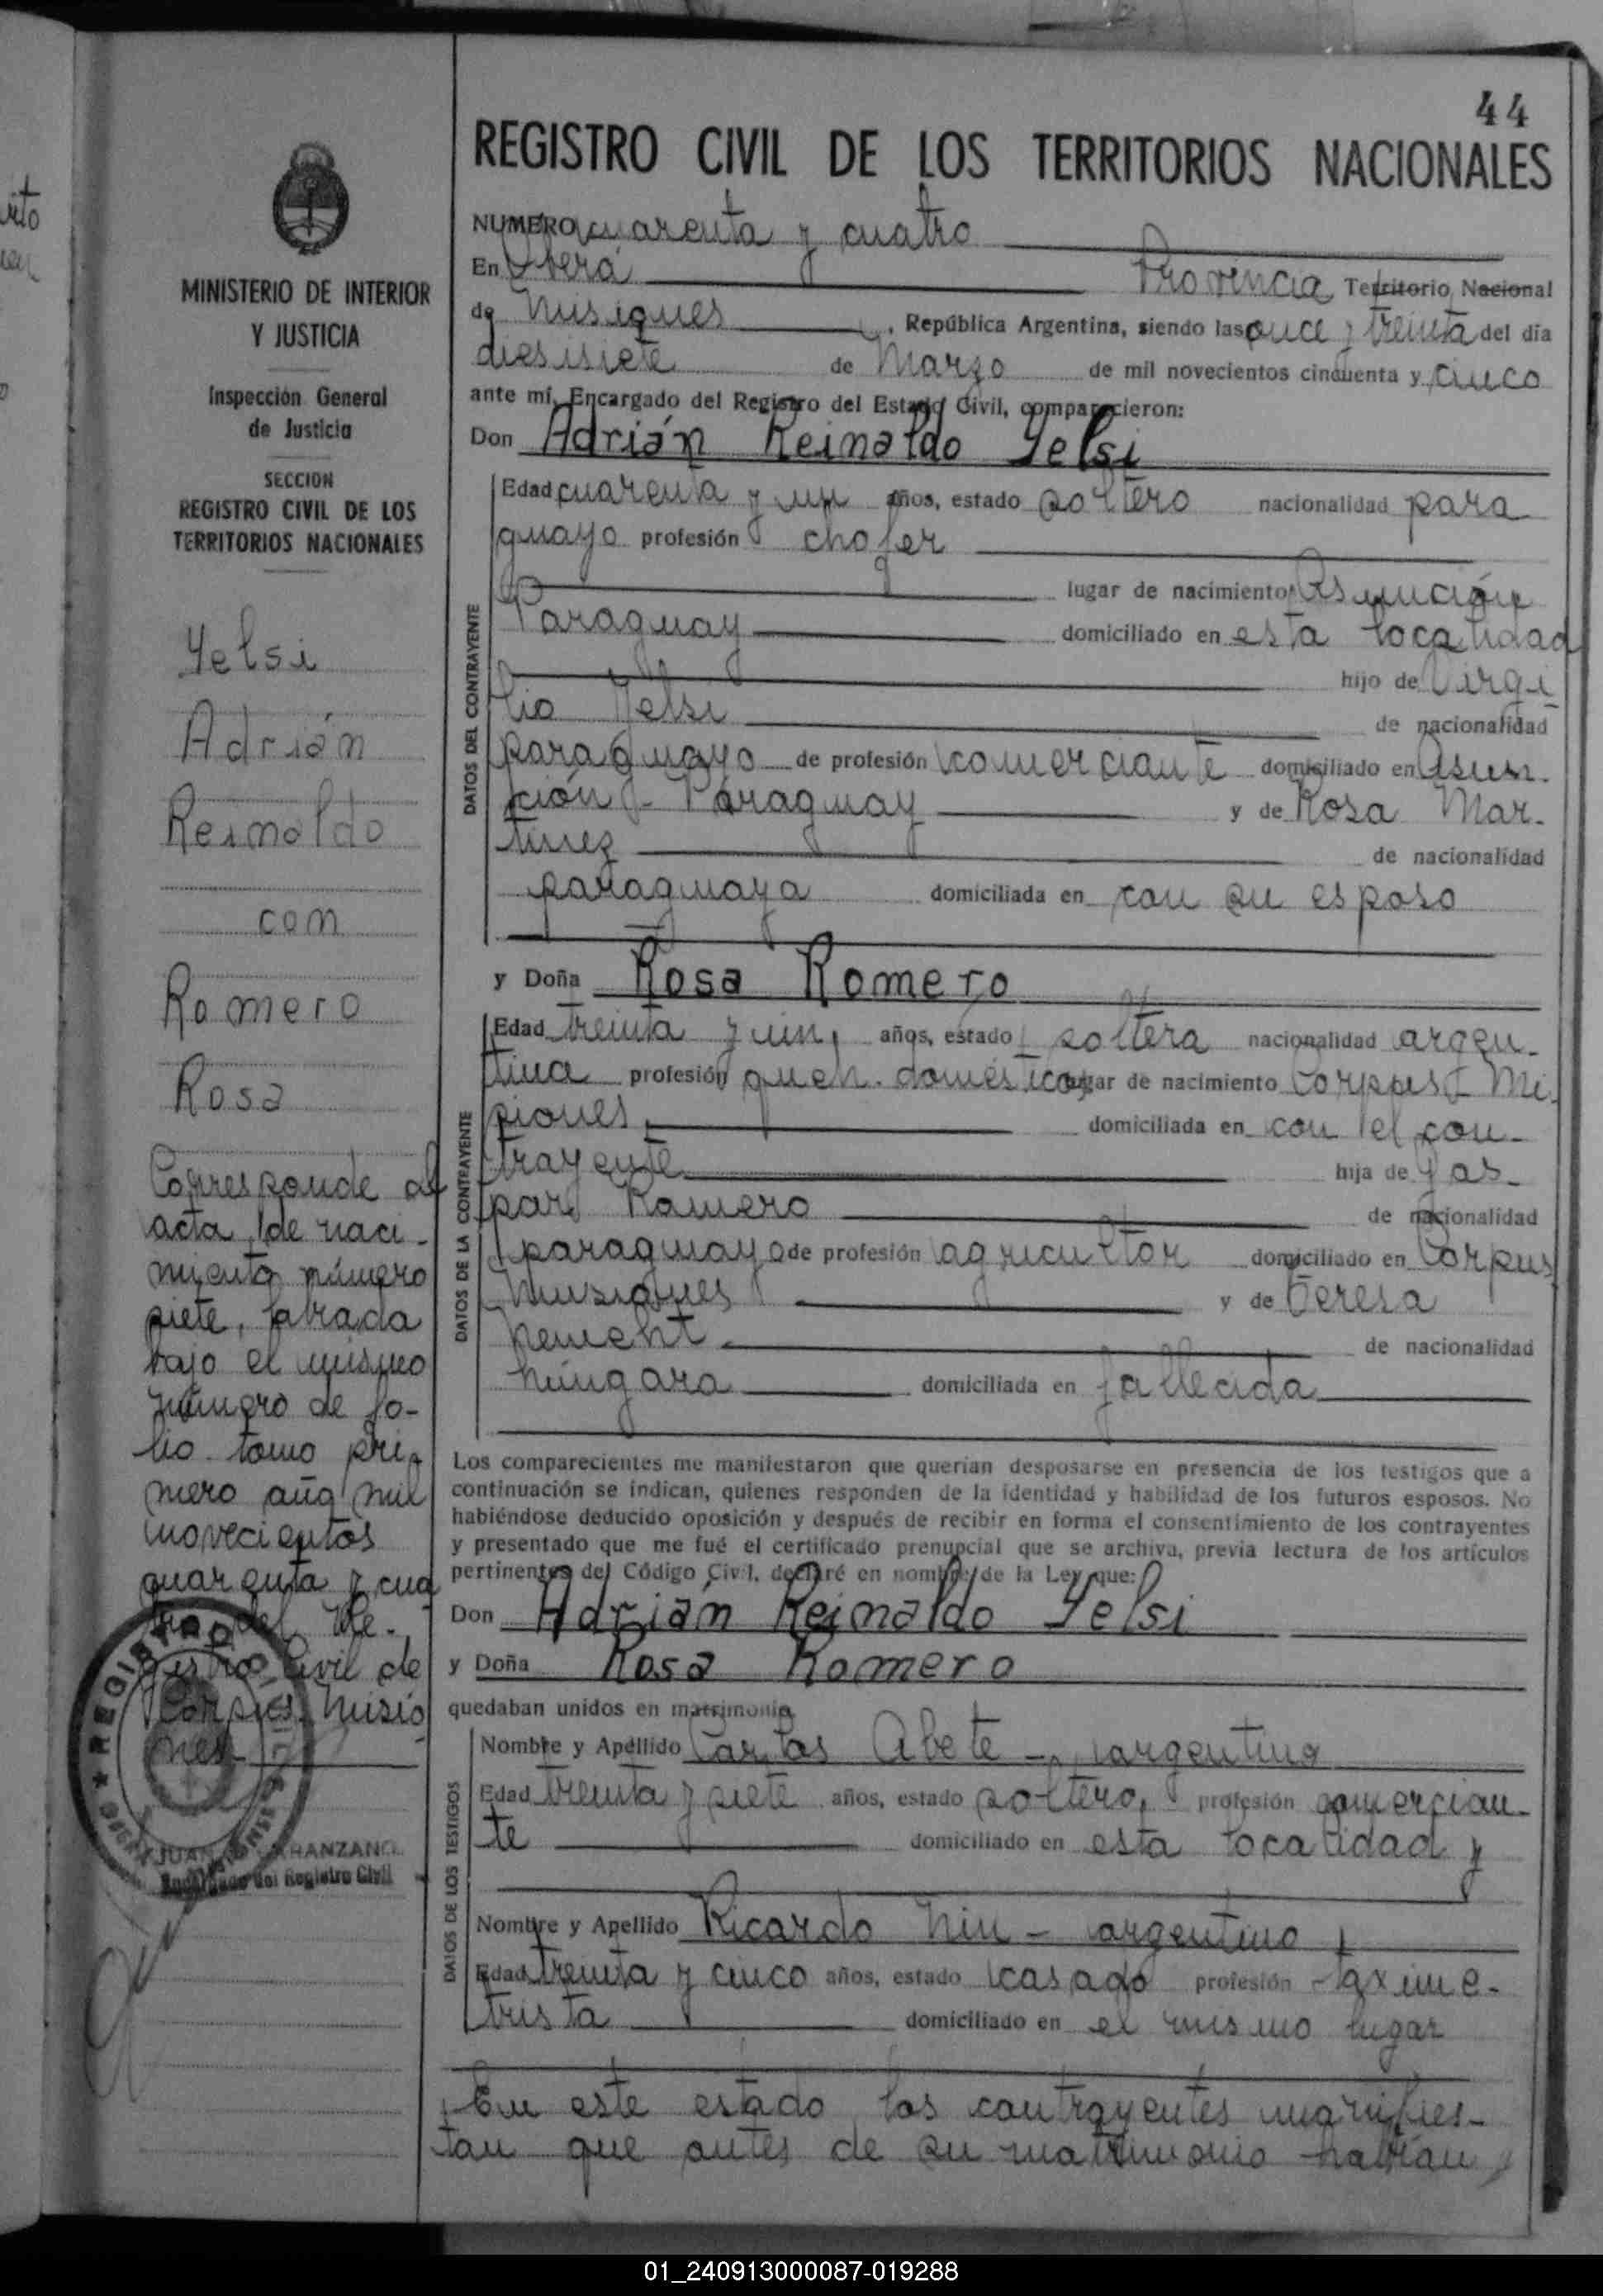 44
REGISTRO CIVIL DE LOS TERRITORIOS NACIONALES
MINISTERIO DE INTERIOR
Y JUSTICIA
Inspección General
de Justicia
SECCION
REGISTRO CIVIL DE LOS
TERRITORIOS NACIONALES
Yelsi
Adrián
Reinaldo
con
Romero
Rosa
Corresponde al
acta de naci-
miento número
siete, labrada
bajo el mismo
número de fo-
lio tomo pri-
mero año mil
novecientos
cuarenta y cua
tro del Re-
gistro Civil de
Corpus, Misio
nes
JUAN ARANZANO
Encargado del Registro Civil
NUMERO cuarenta y cuatro
En Oberá Provincia Territorio Nacional
de Misiones, República Argentina, siendo las once y treinta del día
diesisiete de Marzo de mil novecientos cincuenta y cinco
ante mí, Encargado del Registro del Estado Civil, comparecieron:
Don Adrián Reinaldo Yelsi
DATOS DEL CONTRAYENTE
Edad cuarenta y un años, estado soltero nacionalidad para
guayo profesión chofer
lugar de nacimiento Asunción
Paraguay domiciliado en esta localidad
hijo de Virgi
lio Yelsi de nacionalidad
paraguayo de profesión comerciante domiciliado en Asun-
ción - Paraguay y de Rosa Mar-
tinez de nacionalidad
paraguaya domiciliada en con su esposo
y Doña Rosa Romero
DATOS DE LA CONTRAYENTE
Edad treinta y un, años, estado soltera nacionalidad argen-
tina profesión queh. domésticos lugar de nacimiento Corpus - Mi
siones domiciliada en con el con-
trayente hija de Gas-
par Romero de nacionalidad
paraguayo de profesión agricultor domiciliado en Corpus
Misiones y de Teresa
de nacionalidad
húngara domiciliada en fallecida
Los comparecientes me manifestaron que querían desposarse en presencia de los testigos que a
continuación se indican, quienes responden de la identidad y habilidad de los futuros esposos. No
habiéndose deducido oposición y después de recibir en forma el consentimiento de los contrayentes
y presentado que me fué el certificado prenupcial que se archiva, previa lectura de los artículos
pertinentes del Código Civil, declaré en nombre de la Ley que:
Don Adrián Reinaldo Yelsi
y Doña Rosa Romero
quedaban unidos en matrimonio
DATOS DE LOS TESTIGOS
Nombre y Apellido Carlos Abete - argentino
Edad treinta y siete años, estado soltero, profesión comercian-
te domiciliado en esta localidad y
Nombre y Apellido Ricardo Niu - argentino
Edad treinta y cinco años, estado casado profesión taxime-
trista domiciliado en el mismo lugar
En este estado los contrayentes manifies-
tan que antes de su matrimonio habían
01_240913000087-019288